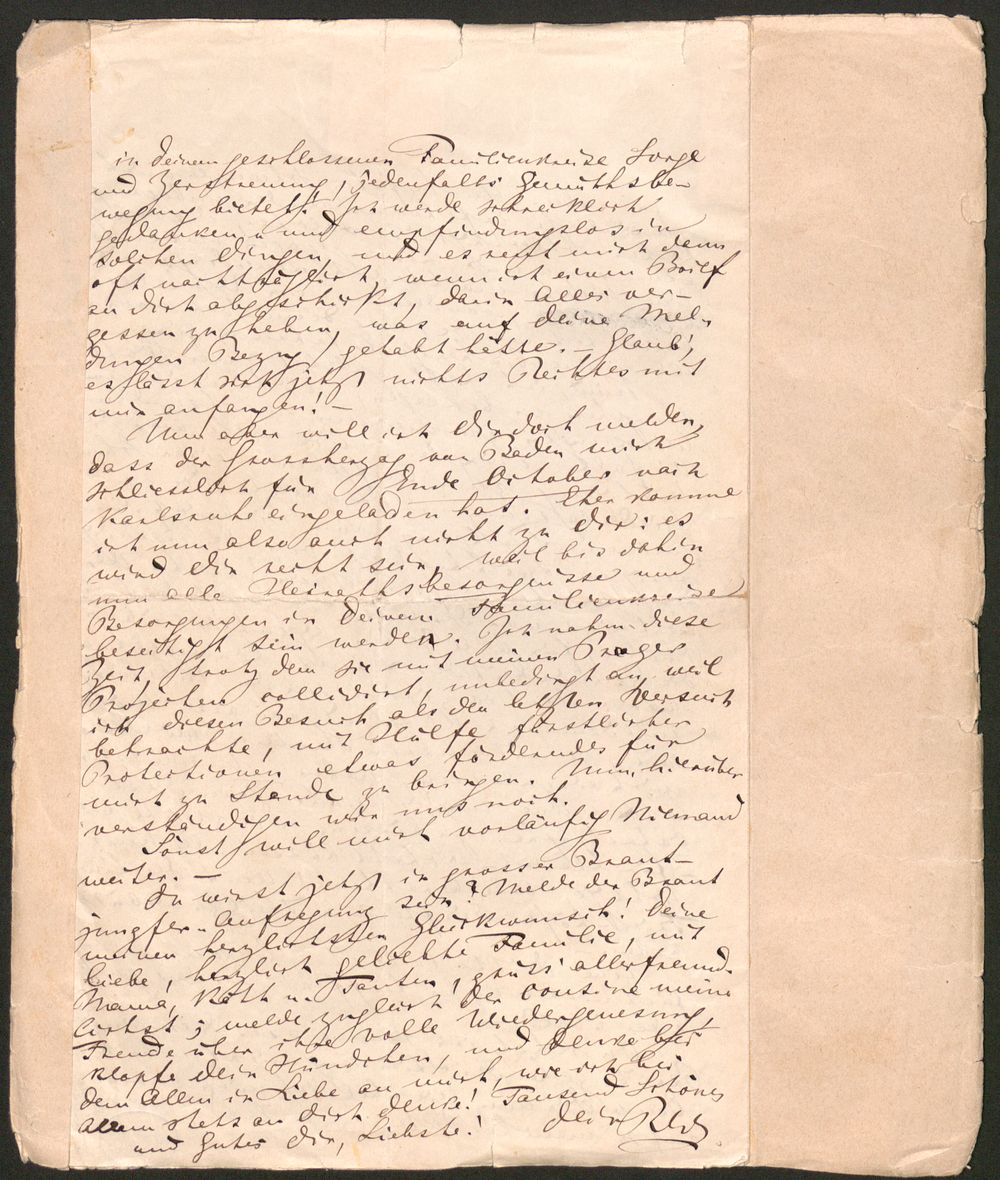 in deinem geschlossenen Familienkreise Sorge
und Zerstreuung, jedenfalls Gemüthsbe-
wegung bietet! Ich werde schrecklich
gedanken- und empfindungslos in
solchen Dingen, und es reut mich dann
oft nachträglich, wenn ich einen Brief
an dich abgeschickt, darin Alles ver-
gessen zu haben, was auf deine Mel-
dungen Bezug gehabt hätte. – Glaub',
es lässt sich jetzt nichts Rechtes mit
mir anfangen! –
Nun aber will ich dir doch melden,
dass der Grossherzog von Baden mich
schliesslich für Ende October nach
Karlsruhe eingeladen hat. Eher komme
ich nun also auch nicht zu dir: es
wird dir recht sein, weil bis dahin
nun alle Heirathsbesorgnisse und
Besorgungen in deinem Familienkreise
beseitigt sein werden. Ich nahm diese
Zeit, trotzdem sie mit meinen Prager
Projecten collidirt, unbedingt an, weil
ich diesen Besuch als den letzten Versuch
betrachte, mit Hülfe fürstlicher
Protectionen etwas förderndes für
mich zu Stande zu bringen. Nun, hierüber
verständigen wir uns noch.
Sonst will mich vorläufig Niemand
weiter. –
Du wirst jetzt in grosser Braut-
jungfer-Aufregung sein? Melde der Braut
meinen herzlichsten Glückwunsch! Deine
liebe, herzlich geliebte Familie, mit
Mama, Käth u. Tanten, grüss' allerfreund-
lichst; melde zugleich der Cousine meine
Freude über ihre volle Wiedergenesung,
klopfe dein Hündchen, und denke bei
dem Allen in Liebe an mich, wie ich bei
Allem stets an dich denke! Tausend Schönes
und Gutes dir, Liebste! Dein RWr.